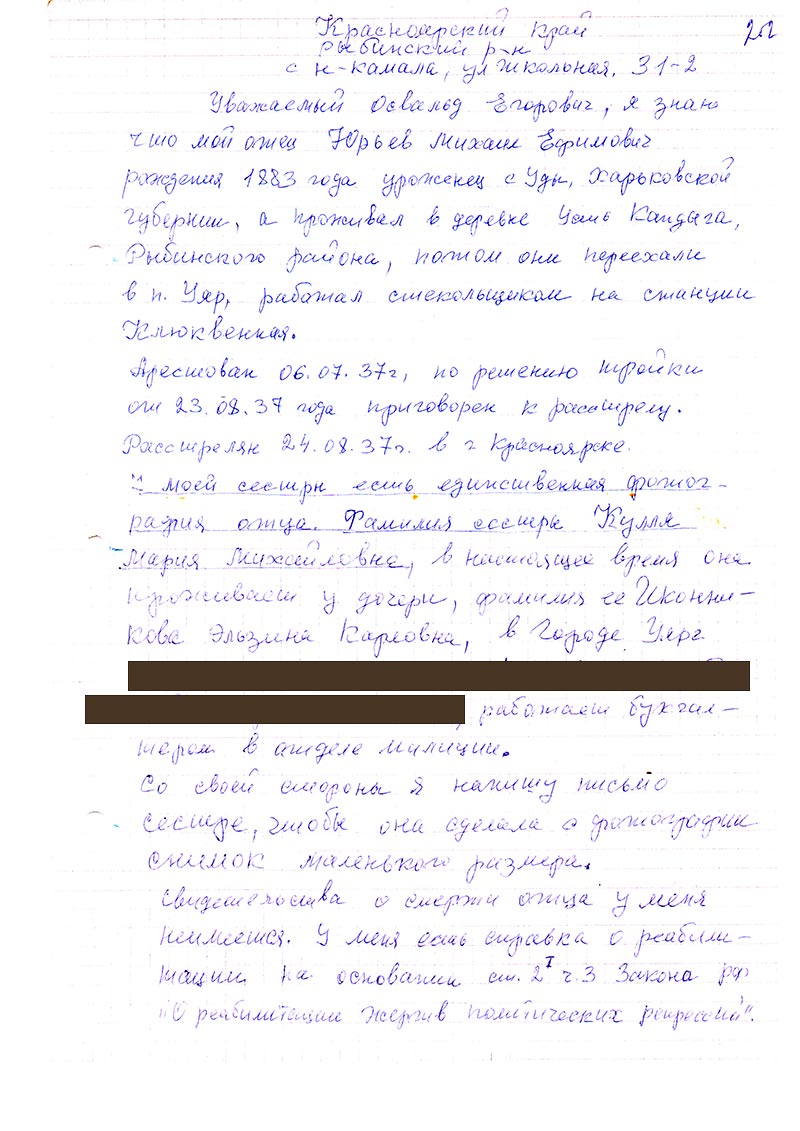 Красноярский край
Рыбинский р-н
с Н-камала, ул Школьная, 31-2
Уважаемый Освальд Егорович, я знаю
что мой отец Юрьев Михаил Ефимович
рождения 1883 года уроженец с Уды, Харьковской
губернии, а проживал в деревне Усть Кандыга,
Рыбинского района, потом они переехали
в п. Уяр, работал стекольщиком на станции
Клюквенная.
Арестован 06.07.37г, по решению тройки
от 23.08.37 года приговорен к расстрелу.
Расстрелян 24.08.37г. в г Красноярске.
У моей сестры есть единственная фотог-
рафия отца. Фамилия сестры Кулля
Мария Михайловна, в настоящее время она
проживает у дочери, фамилия ее Иконни-
кова Эльзина Карловна, в Городе Уяре
работает бухгал-
тером в отделе милиции.
Со своей стороны я напишу письмо
сестре, чтобы она сделала с фотографии
снимок маленького размера.
Свидетельства о смерти отца у меня
неимеется. У меня есть справка о реабили-
тации на основании ст. 2 ч.3 Закона РФ
"О реабилитации жертв политических репрессий".